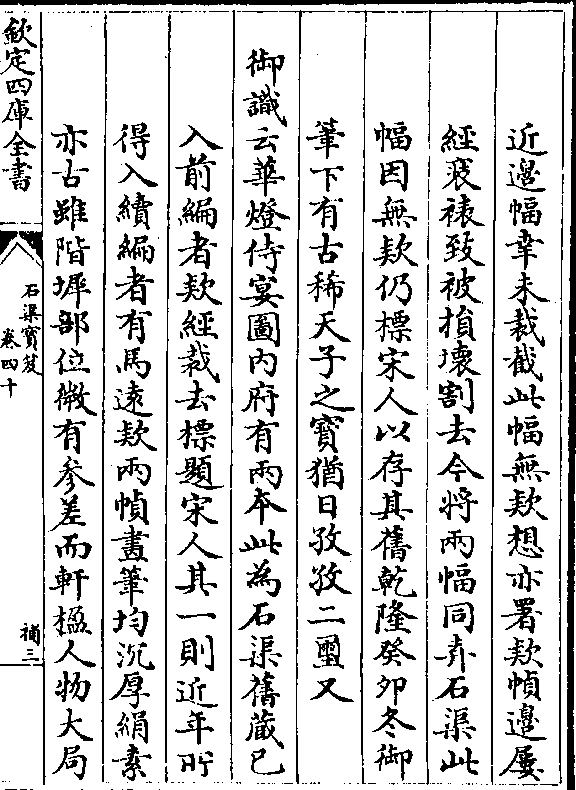 近邉幅幸未裁截此幅無欵想亦署欵幀邉屢
經裝裱致被損壊割去今將兩幅同弆石渠此
幅因無欵仍標宋人以存其舊乾隆癸夘冬御
筆下有古稀天子之寳猶日孜孜二璽又
御識云華燈侍宴圖内府有兩本此為石渠舊藏已
入前編者欵經裁去標題宋人其一則近年所
得入續編者有馬逺欵兩幀畫筆均沉厚絹素
亦古雖階墀部位微有參差而軒楹人物大局
欽定四庫全書
石渠寳笈
卷四十
補三